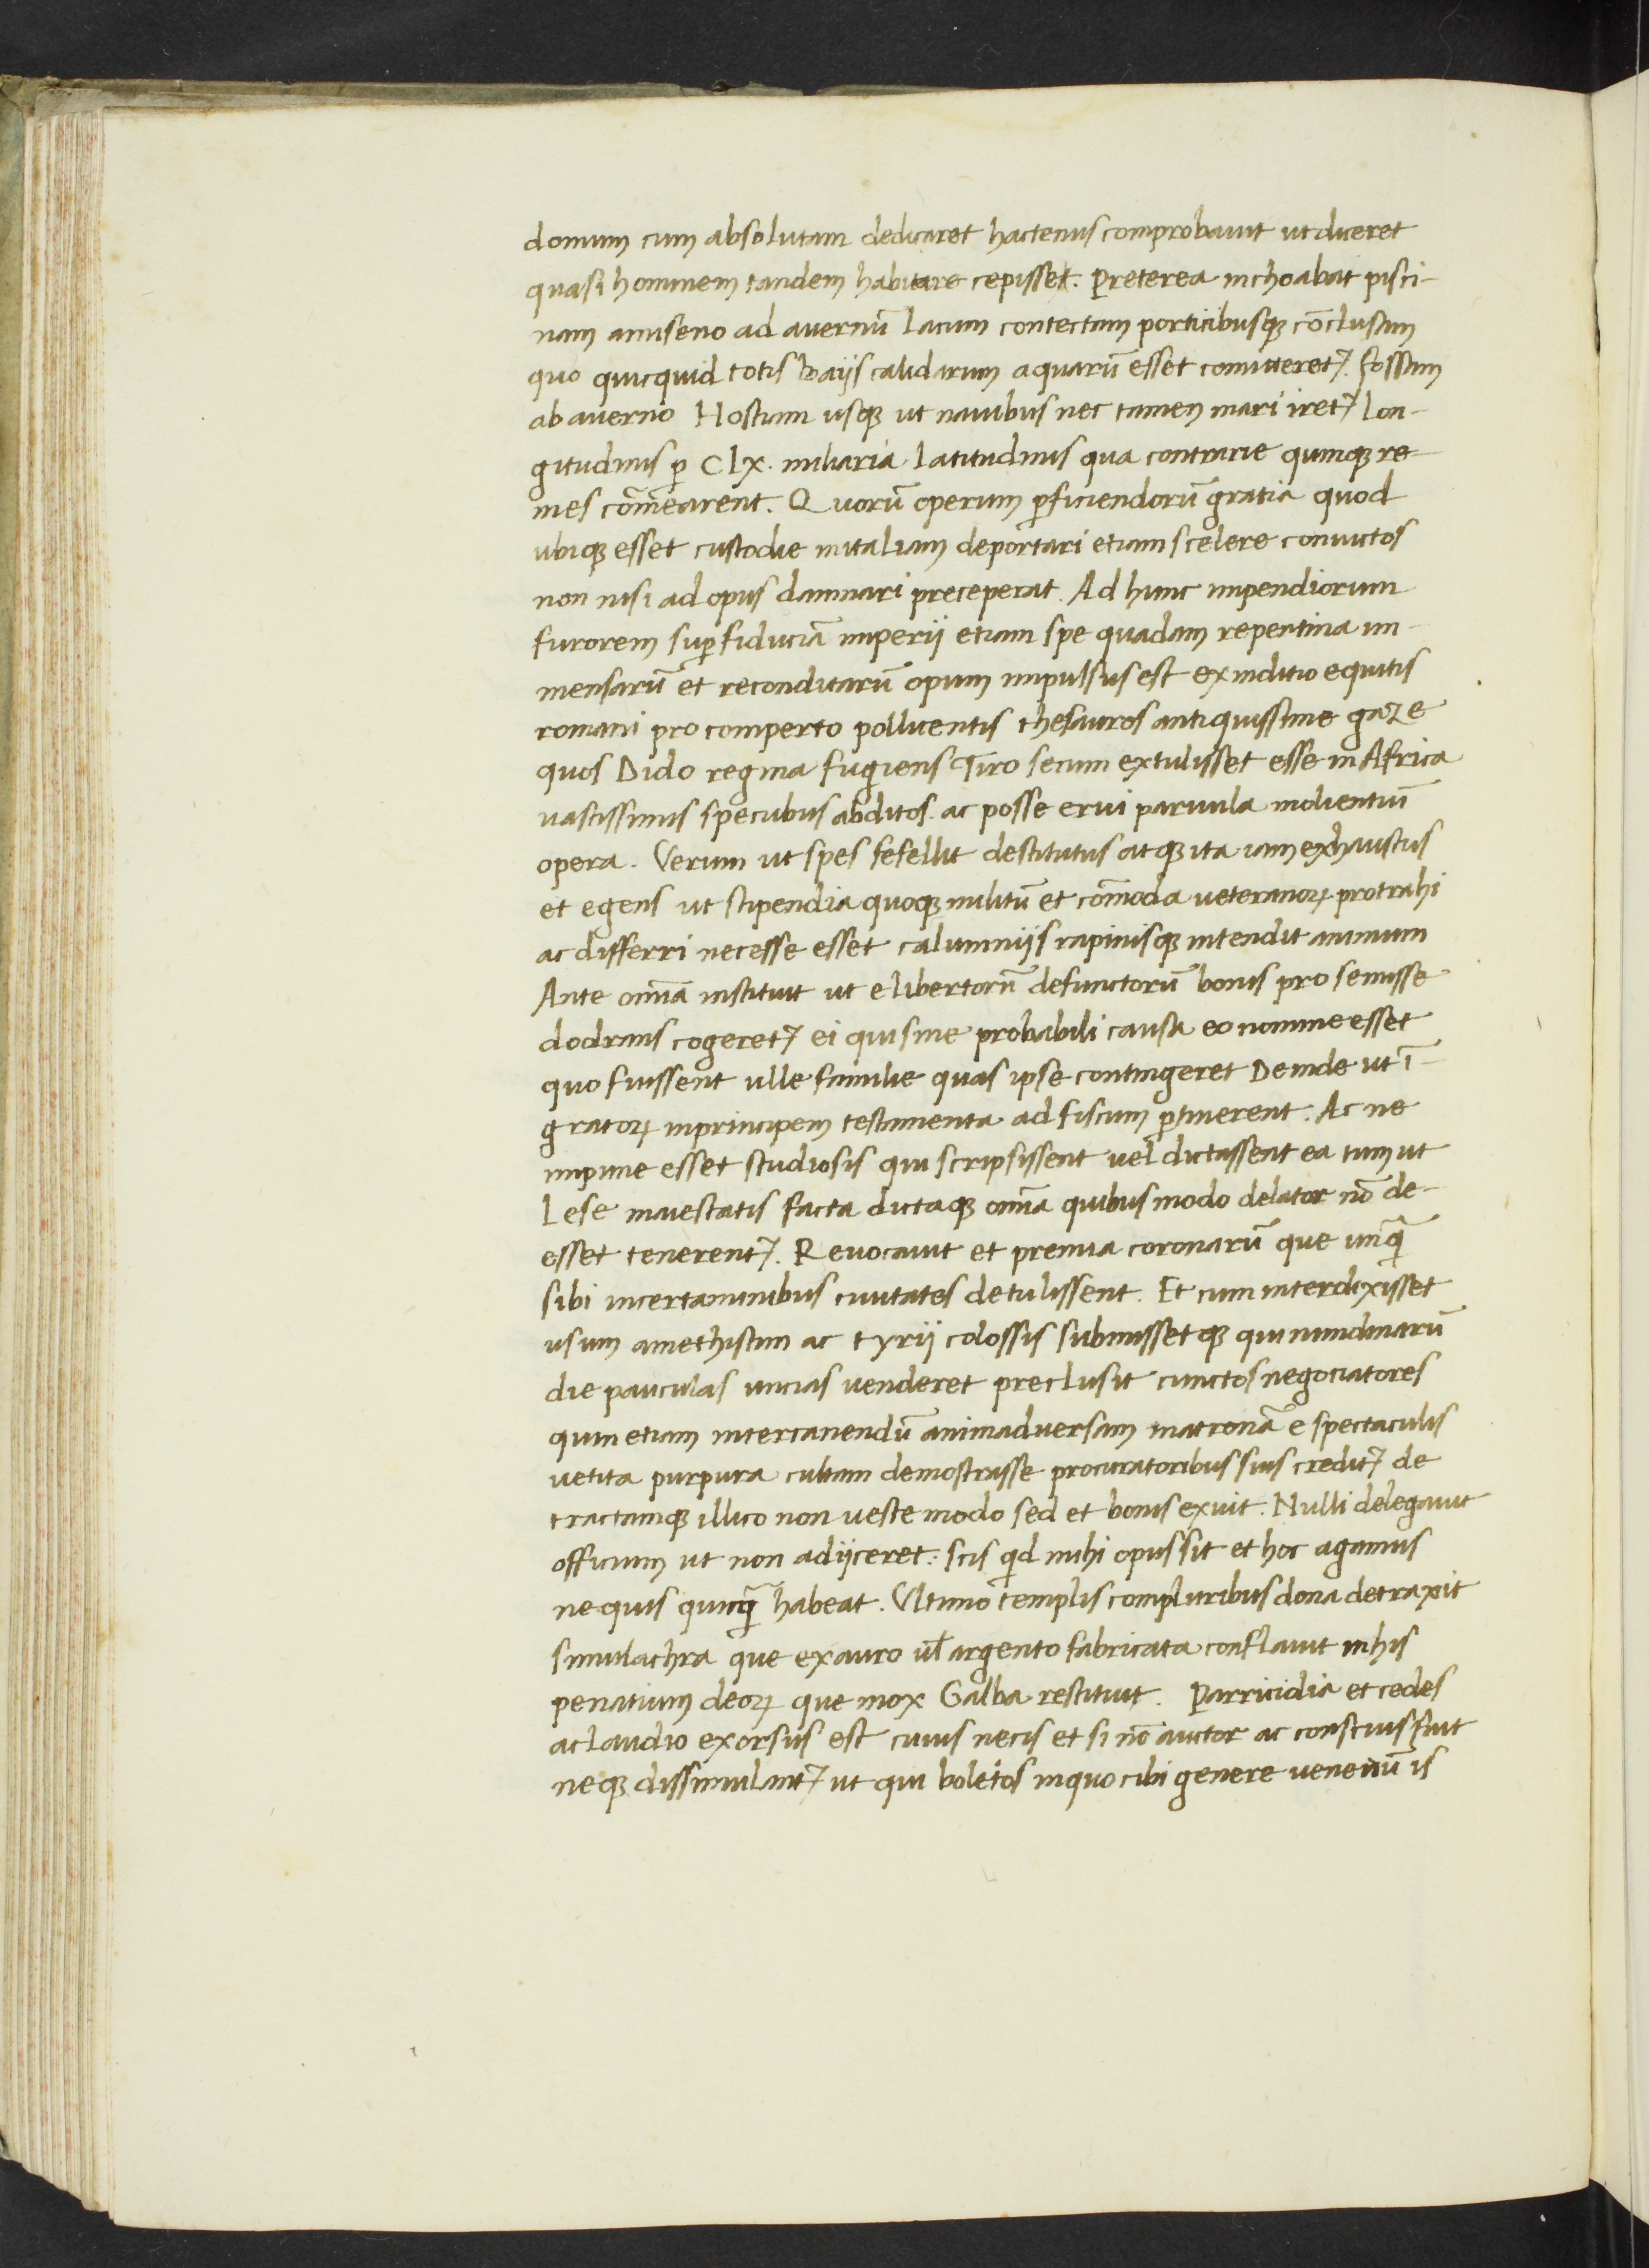 domum cum absolutam dedicaret hactenus comprobauit ut diceret
quasi hominem tandem habitare cepisset. Preterea inchoabat pisci-
nam amiseno ad auernū lacum contectam porticibusqꝫ cōclusam
quo quicquid totis baijs calidarum aquarū esset conuiteretꝰ. fossam
ab auerno Hostiam usqꝫ ut nauibus nec tamen mari iretꝰ lon-
gitudinis ꝑ Clx. miliaria latitudinis qua contrarie quinqꝫ re
mes cōmearent. Quorū operum ꝑficiendorū gratia quod
ubiqꝫ esset custodie initaliam deportari etiam scelere conuictos
non nisi ad opus damnari preceperat. Ad hunc impendiorum
furorem suꝑ fiduciā imperij etiam spe quadam repentina im-
mensarū et reconditarū opum impulsus est ex inditio equitis
romani pro comperto pollicentis thesauros antiquissime gaze
quos Dido regina fugiens Tiro secum extulisset esse in Africa
uastissimis specubus abditos. ac posse erui paruula molientiū
opera. Verum ut spes fefellit destitutus atqꝫ ita iam exhaustus
et egens ut stipendia quoqꝫ militū et cōmoda ueteranoꝝ protrahi
ac differri necesse esset calumnijs rapinisqꝫ intendit animum
Ante omīa instituit ut e libertorū defunctorū bonis pro semisse
dodrans cogeretꝰ ei qui sine probabili causa eo nomine esset
quo fuissent ulle familie quas ipse contingeret Deinde ut ī-
gratoꝝ inprincipem testamenta ad fiscum ꝑtinerent. Ac ne
impune esset studiosis qui scripsissent uel dictassent ea tum ut
Lese maiestatis facta dictaqꝫ omīa quibus modo delator nō de-
esset tenerentꝰ. Reuocauit et premia coronarū que unꝗ̄
sibi incertaminibus ciuitates detulissent. Et cum interdixisset
usum amethistim ac tyrij colossis submissetqꝫ qui nundinarū
die pauculas uncias uenderet preclusit cunctos negociatores
quin etiam intercanendū animaduersam matronā e spectaculis
uetita purpura cultam demostrasse procuratoribus suis creditꝰ de
tractamqꝫ illico non ueste modo sed et bonis exuit. Nulli delegauit
officium ut non adijceret: scis qd mihi opus sit et hoc agamus
ne quis quicꝗ̄ habeat. Vltimo templis compluribus dona detraxit
simulachra que ex auro ul̄ argento fabricata conflauit inhis
penatium deoꝝ que mox Galba restituit. Parricidia et cedes
aclaudio exorsus est cuius necis et si nō auctor ac conscius fuit
neqꝫ dissimulantꝰ ut qui boletos inquo cibi genere uenenū is